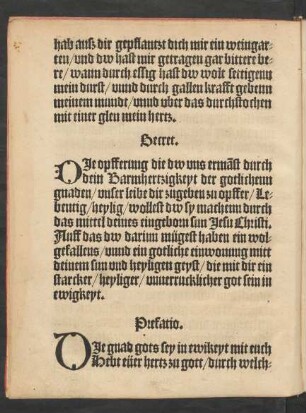 hab auß dir gepflantzt dich mir ein weingar-
ten/vnd dw hast mir getragen gar bittere ber
re/wann durch essig hast dw wöle setigenn
mein durst/vnnd durch gallen krafft gebenn
meinem munde/vnnd vber das durchstochen
mit einer glen mein hertz.
Secret.
DJe opfferung die dw vns ermāst durch
dein Barmhertzigkeyt der gotlichenn
gnaden/vnser leibe dir zugeben zu opffer/Le-
bentig/heylig/wöllest dw sy machenn durch
das mittel deines eingeborn sun Jesu Christi.
Auff das dw darinn mügest haben ein wol-
gefallens/vnnd ein gotliche einwonung mit
deinem sun vnd heyligen geyst/die mit dir ein
starcker/heyliger/vnuerrucklicher got sein in
ewigkeyt.
Prefatio.
DJe gnad gots sey in ewikeyt mit euch
Hebt eüer hertz zu gott/durch welch-